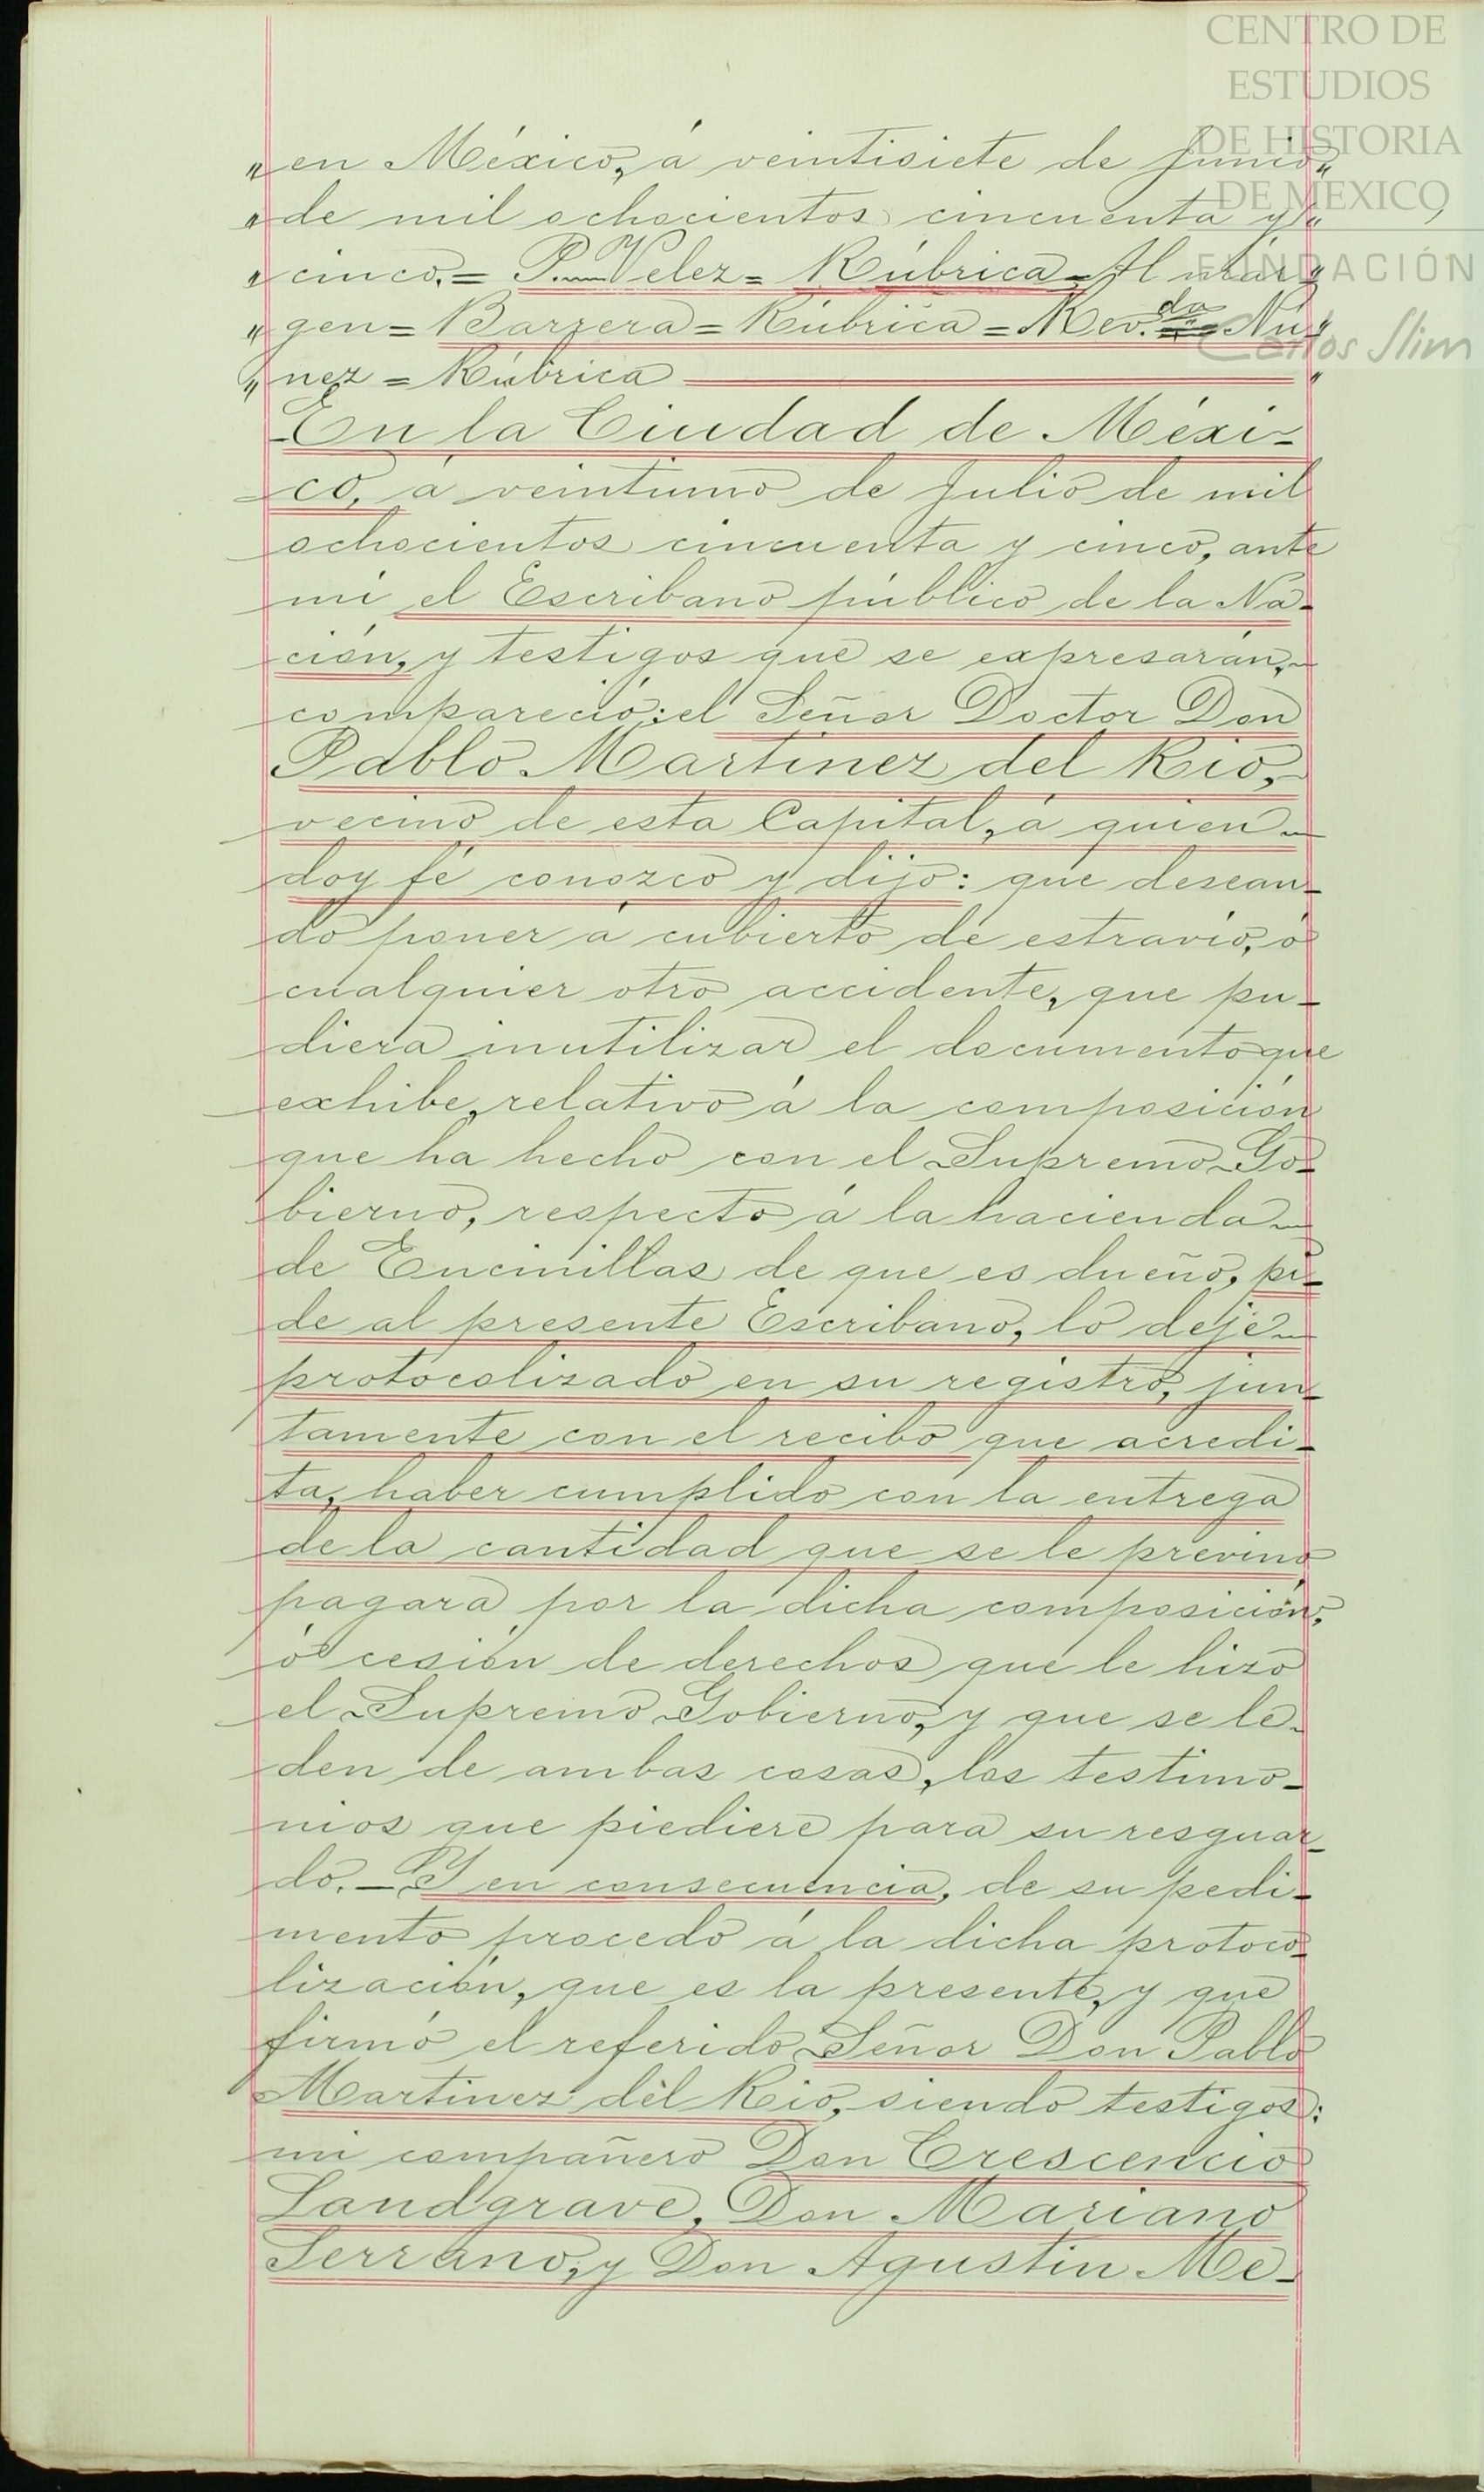 CENTRO DE
ESTUDIOS
DE HISTORIA
DE MEXICO
FUNDACIÓN
Carlos Slim
„en México, á veintisiete de Junio„
„de mil ochocientos cincuenta y„
„cinco.= P. Velez= Rúbrica=Al már„
„gen= Barrera= Rúbrica= Rev.da Nú„
„ñez = Rúbrica
En la Ciudad de Méxi-
co, á veintiuno de Julio de mil
ochocientos cincuenta y cinco, ante
mi el Escribano público de la Na-
ción, y testigos que se expresarán,
compareció: el Señor Doctor Don
Pablo Martinez del Rio,
vecino de esta Capital, á quien
doy fé conozco y dijo: que desean-
do poner á cubierto de estravio, ó
cualquier otro accidente, que pu-
diera inutilizar el documento que
exhibe, relativo á la composición
que ha hecho con el Supremo Go-
bierno, respecto á la hacienda
de Encinillas de que es dueño, pi-
de al presente Escribano, lo deje
protocolizado en su registro, jun-
tamente con el recibo que acredi-
ta, haber cumplido con la entrega
de la cantidad que se le previno
pagara por la dicha composición,
ó cesión de derechos que le hizo
el Supremo Gobierno, y que se le
den de ambas cosas, los testimo-
nios que piediere para su resguar-
do.- Y en consecuencia, de su pedi-
mento procedo á la dicha protoco-
lización, que es la presente, y que
firmó el referido Señor Don Pablo
Martinez del Rio, siendo testigos:
mi compañero Don Crescencio
Landgrave, Don Mariano
Serrano, y Don Agustin Me-